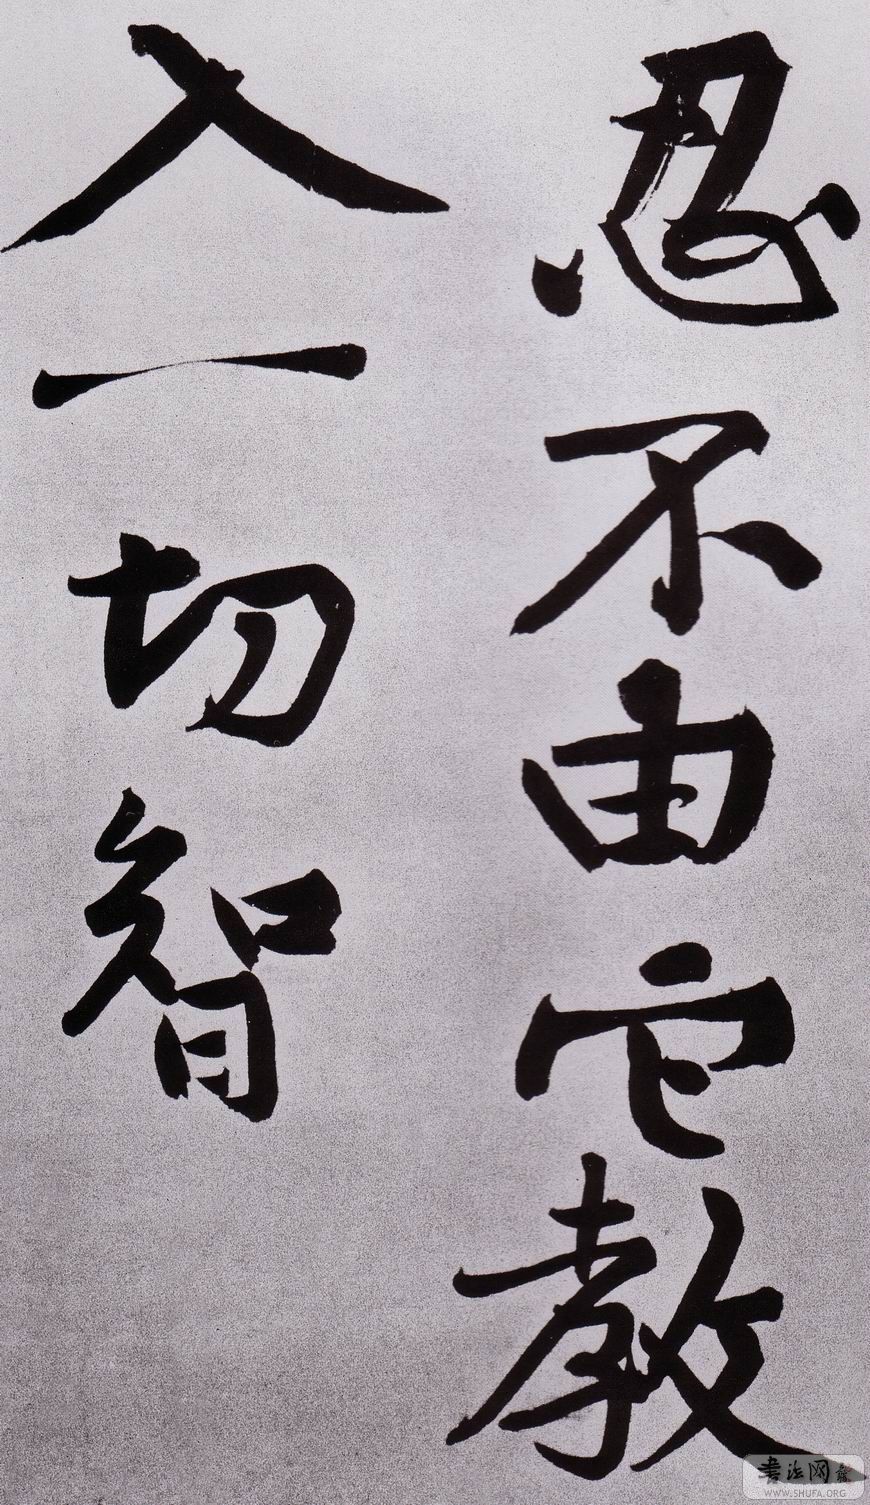 忍不由它教
入一切智
書法网
WWW.SHUFA.ORG